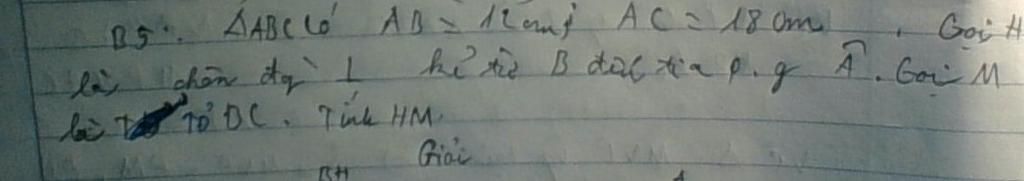 B5: ΔABC có AB = 12cm; AC = 18cm. Gọi H
là chân đg ⊥ kẻ từ B đến tia p.g Â. Gọi M
là TĐ BC. Tính HM.
Giải
BH